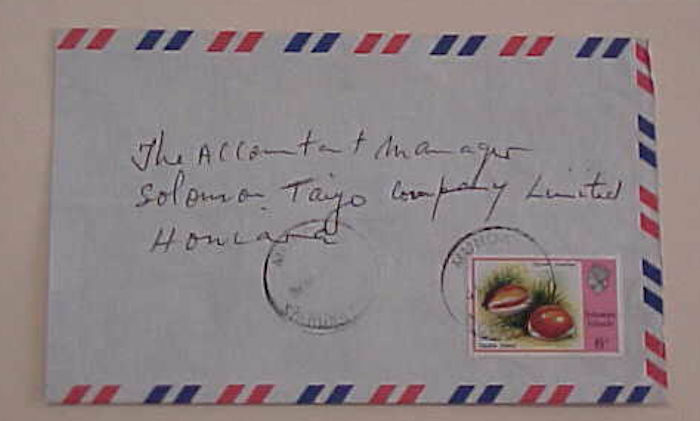 The Accountant Manager
Solomon Taiyo Company Limited
Honiara
Solomon
Islands